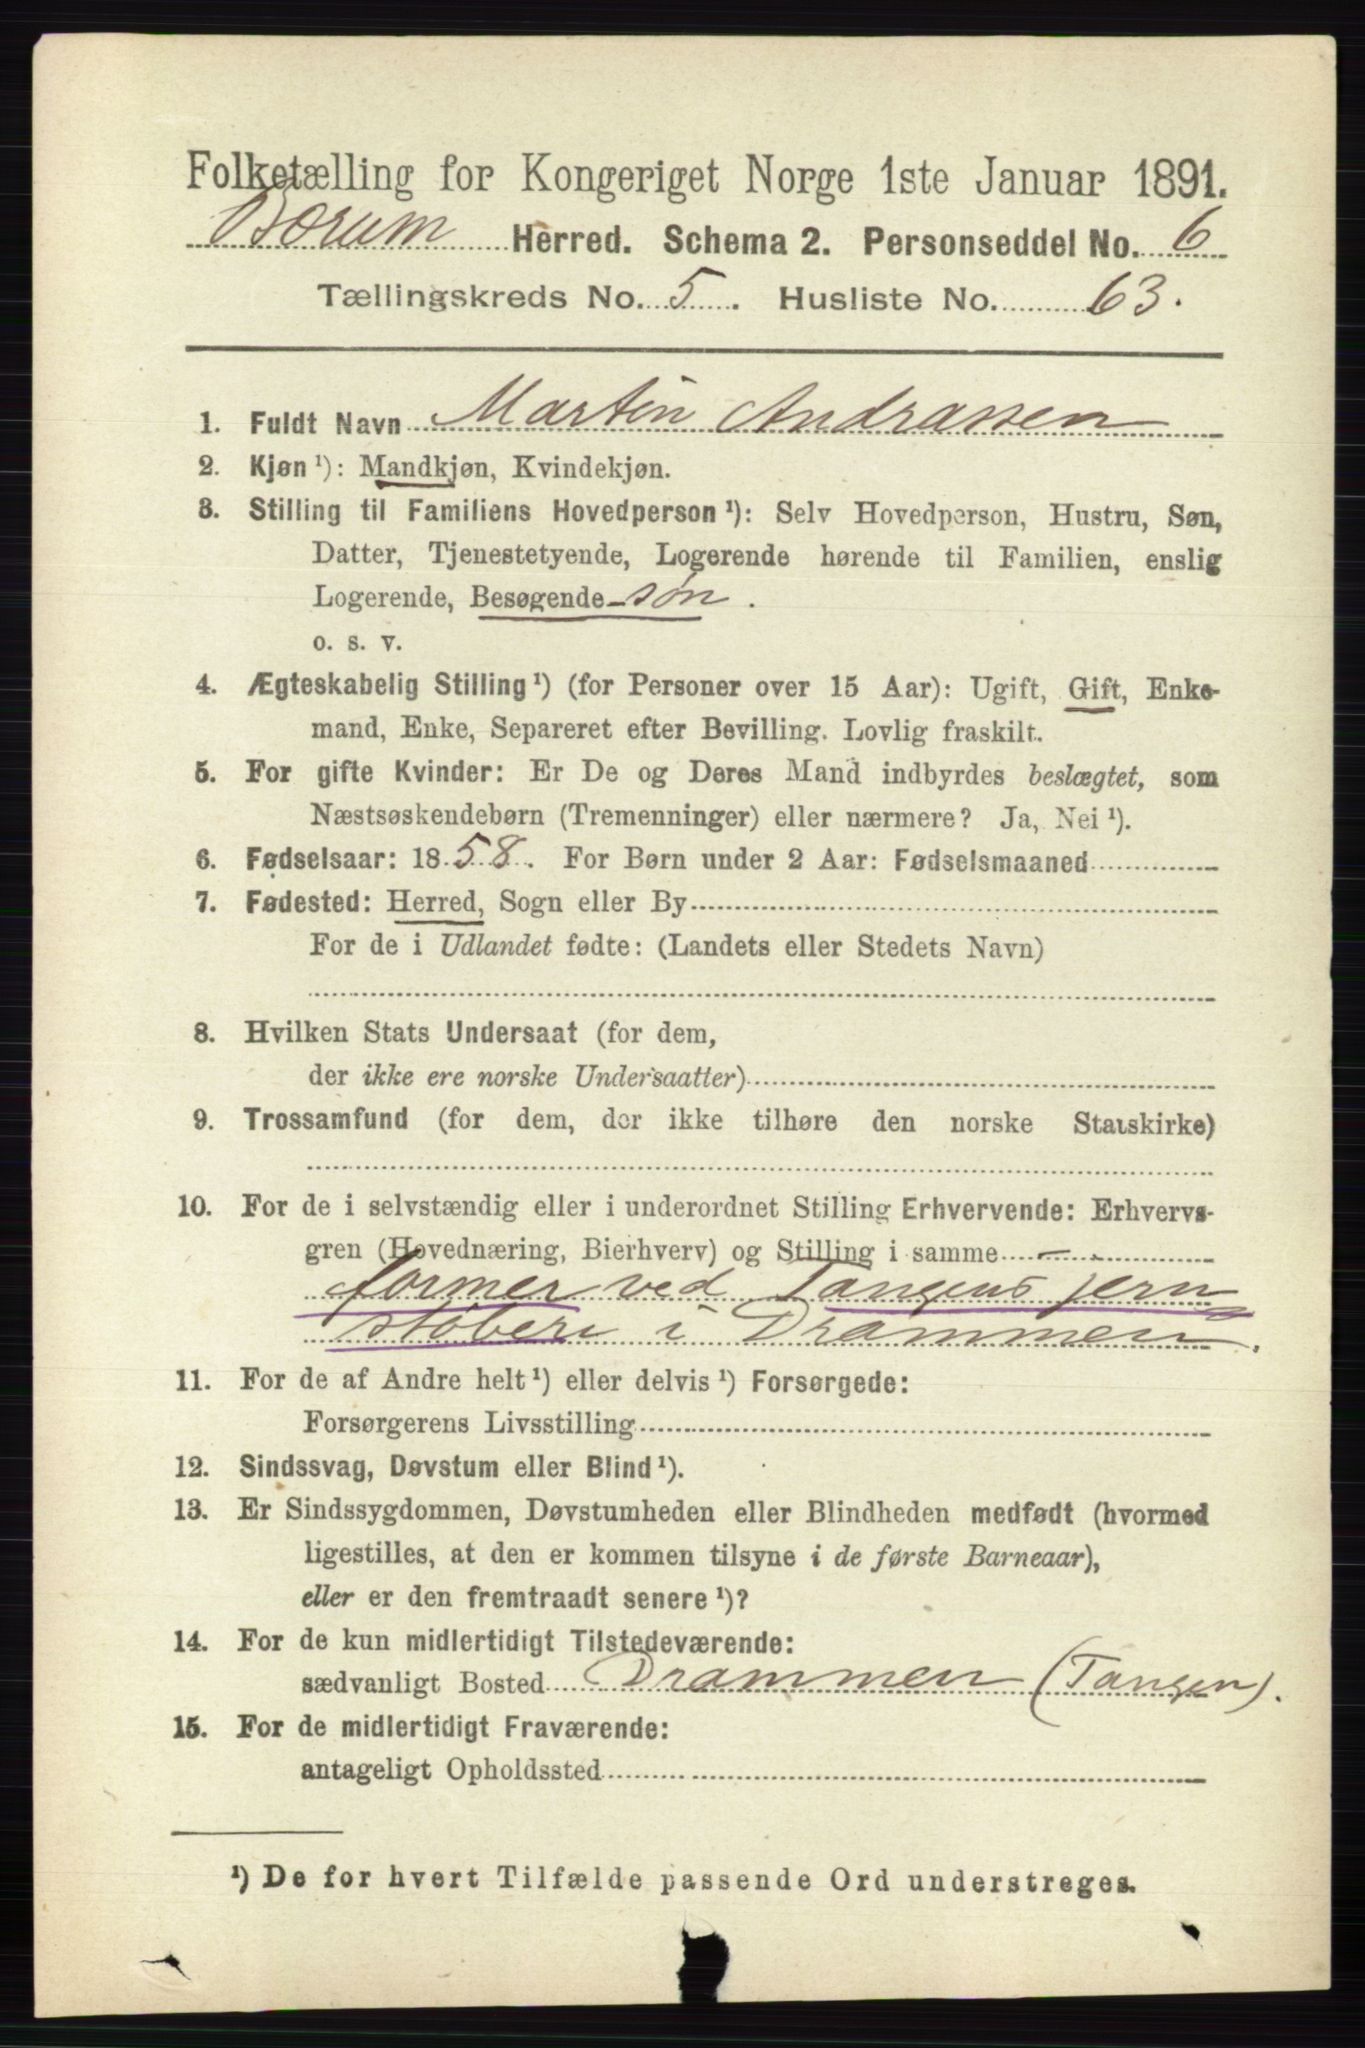 Folketælling for Kongeriget Norge 1ste Januar 1891.
Bærum Herred. Schema 2. Personseddel No. 6
Tællingskreds No. 5. Husliste No. 63.
1. Fuldt Navn Martin Andrassen
2. Kjøn ¹): Mandkjøn, Kvindekjøn.
3. Stilling til Familiens Hovedperson ¹): Selv Hovedperson, Hustru, Søn,
Datter, Tjenestetyende, Logerende hørende til Familien, enslig
Logerende, Besøgende - søn.
o. s. v.
4. Ægteskabelig Stilling ¹) (for Personer over 15 Aar): Ugift, Gift, Enke-
mand, Enke, Separeret efter Bevilling. Lovlig fraskilt.
5. For gifte Kvinder: Er De og Deres Mand indbyrdes beslægtet, som
Næstsøskendebørn (Tremenninger) eller nærmere? Ja, Nei ¹).
6. Fødselsaar: 1858. For Børn under 2 Aar: Fødselsmaaned
7. Fødested: Herred, Sogn eller By
For de i Udlandet fødte: (Landets eller Stedets Navn)
8. Hvilken Stats Undersaat (for dem,
der ikke ere norske Undersaatter)
9. Trossamfund (for dem, der ikke tilhøre den norske Statskirke)
10. For de i selvstændig eller i underordnet Stilling Erhvervende: Erhvervs-
gren (Hovednæring, Bierhverv) og Stilling i samme - .
former ved Tangens jern
støberi i Drammen.
11. For de af Andre helt ¹) eller delvis ¹) Forsørgede:
Forsørgerens Livsstilling
12. Sindssvag, Døvstum eller Blind ¹).
13. Er Sindssygdommen, Døvstumheden eller Blindheden medfødt (hvormed
ligestilles, at den er kommen tilsyne i de første Barneaar),
eller er den fremtraadt senere ¹)?
14. For de kun midlertidigt Tilstedeværende:
sædvanligt Bosted Drammen (Tangen).
15. For de midlertidigt Fraværende:
antageligt Opholdssted
¹) De for hvert Tilfælde passende Ord understreges.